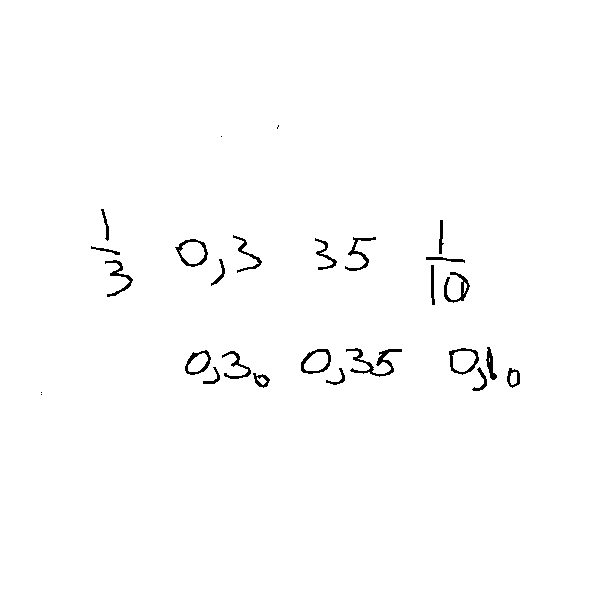 1/3 0,3 35 1/10
0,30 0,35 0,10